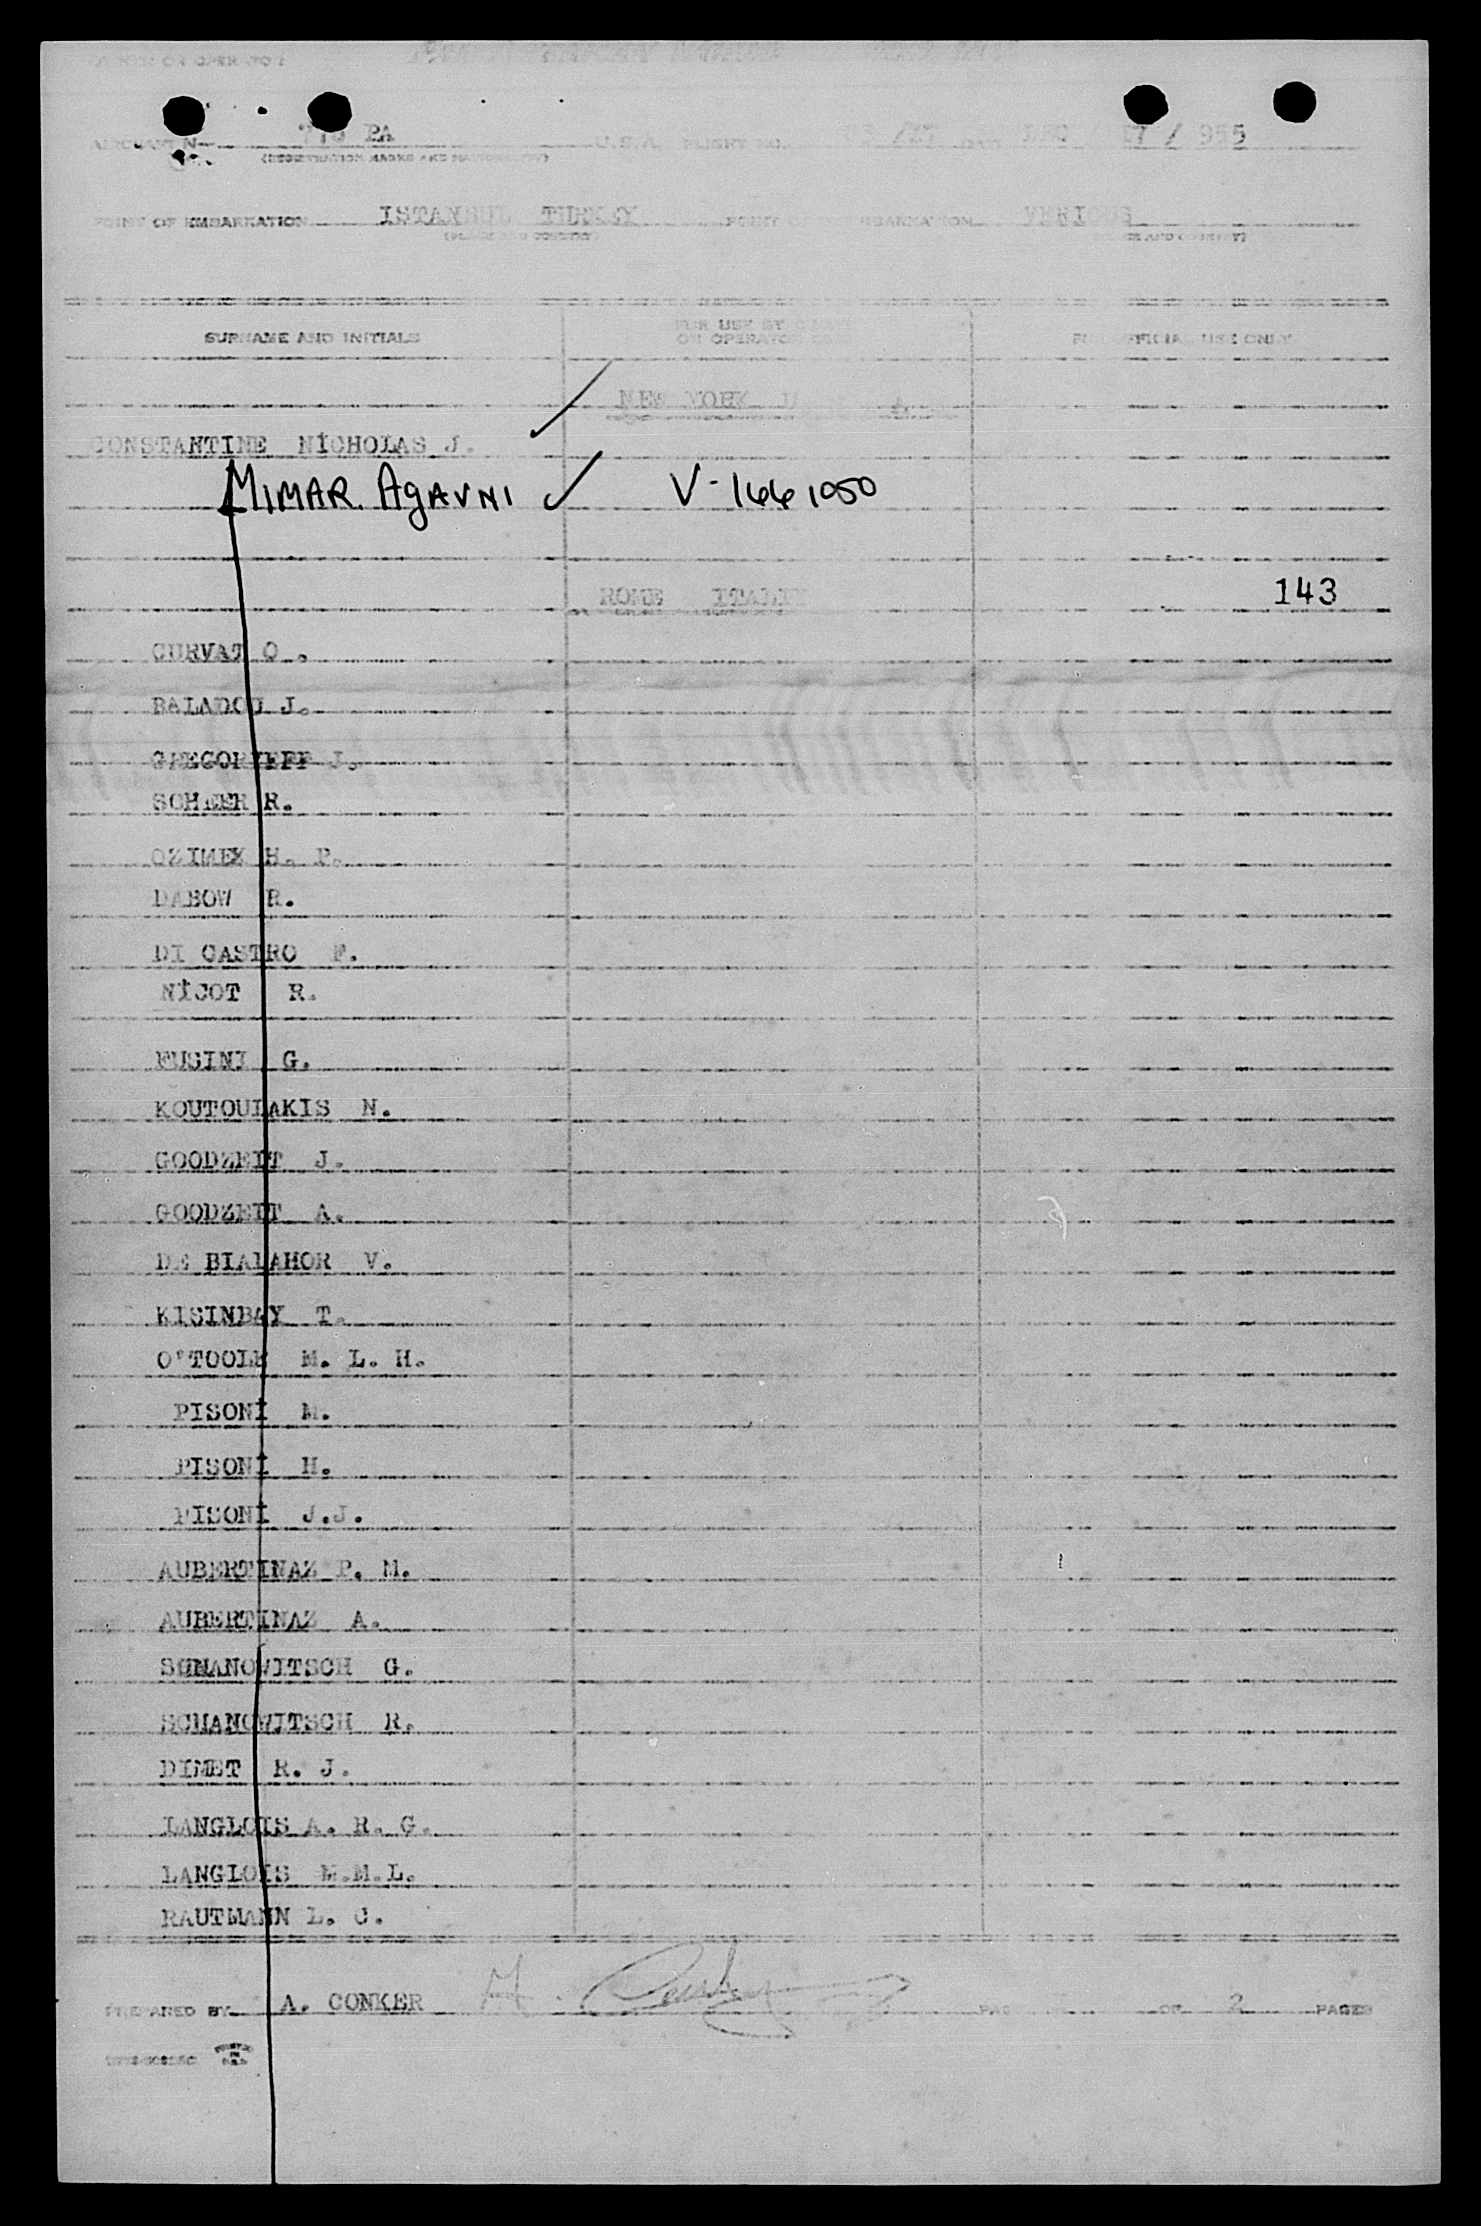 OWNER OR OPERATOR
AIRCRAFT PA U.S.A. FLIGHT NO. / DEC 17 / 955
(REGISTRATION MARKS AND NATIONALITY)
POINT OF EMBARKATION ISTANBUL TURKEY POINT OF EMBARKATION VERIOUS
(PLACE AND COUNTRY) (PLACE AND COUNTRY)
SURNAME AND INITIALS FOR USE BY OR OPERATOR FOR OFFICIAL USE ONLY
NEW YORK
CONSTANTINE NİCHOLAS J.
MIMAR. AgAVNI V-1661050
ROME ITALY
143
CURVAT O.
BALADOU J.
GREGORIEFF J.
SCHEER R.
OZIMEK H. P.
DABOW R.
DI CASTRO F.
NİCOT R.
FUSINI G.
KOUTOULAKIS N.
GOODZEIT J.
GOODZEIT A.
DE BIALAHOR V.
KISINBAY T.
O'TOOLE M. L. H.
PISONİ M.
PISONİ H.
PISONİ J.J.
AUBERTINAZ P. M.
AUBERTINAZ A.
SCMANOWITSCH G.
SCMANOWITSCH R.
DIMET R. J.
LANGLOIS A. R. G.
LANGLOIS M.M.L.
RAUTMANN L. C.
PREPARED BY A. CONKER PAGE OF 2 PAGES
PRINTED IN U.S.A.